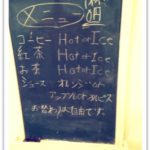 メニュー
コーヒー Hot or Ice
紅茶 Hot or Ice
お茶 Hot or Ice
ジュース オレンジ or
アップル or カルピス
お替わりは自由です。